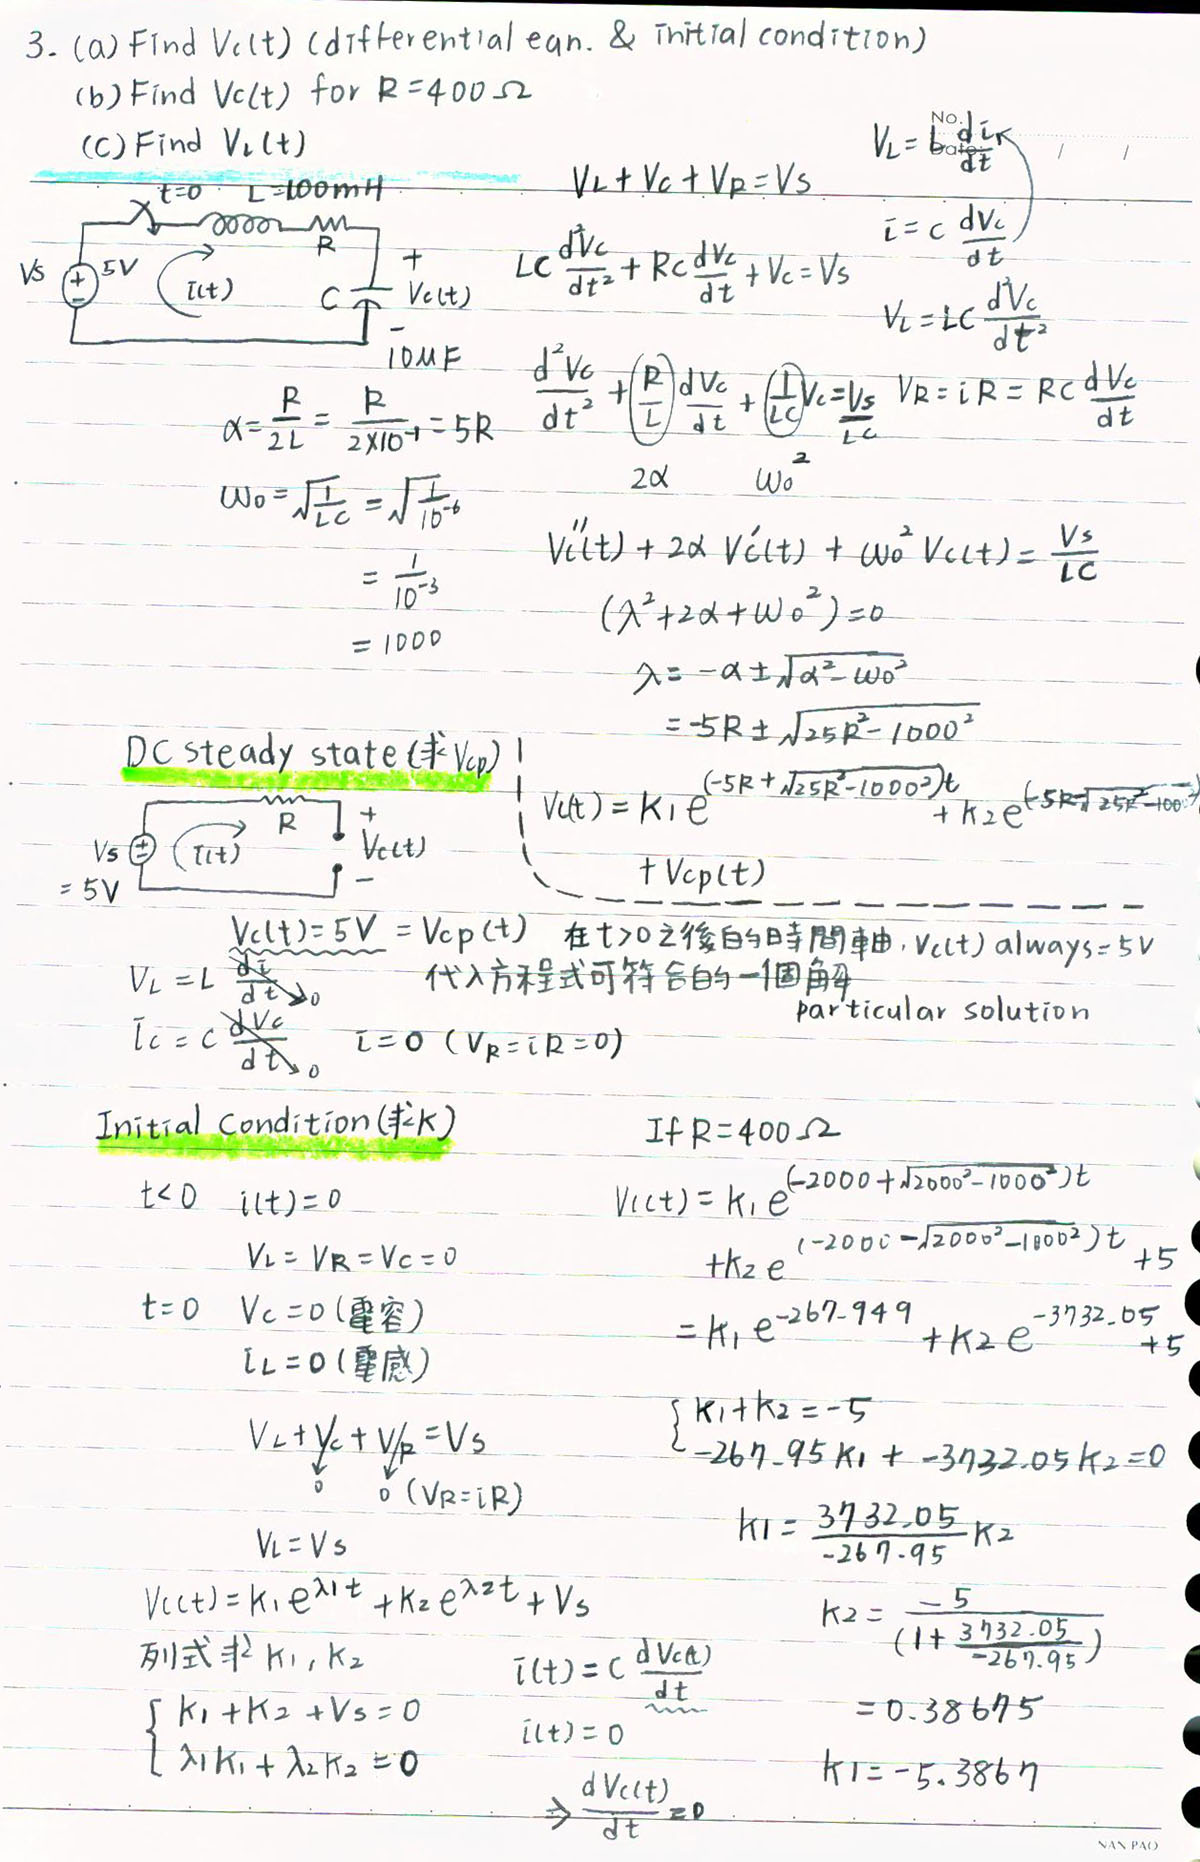 3. (a) Find Vc(t) (differential eqn. & initial condition)
(b) Find Vc(t) for R=400Ω
(c) Find VL(t)
No.
Date
VL = L di/dt
t=0 L=100mH
VL + Vc + VR = Vs
i = c dVc/dt
R
Vs 5V i(t) C + Vc(t) -
10μF
LC d²Vc/dt² + RC dVc/dt + Vc = Vs
VL = LC d²Vc/dt²
d²Vc/dt² + (R/L) dVc/dt + (1/LC) Vc = Vs/LC
VR = iR = RC dVc/dt
2α ω0²
α = R/2L = R/2×10⁻¹ = 5R
ω0 = √1/LC = √1/10⁻⁶
= 1/10⁻³
= 1000
Vc''(t) + 2α Vc'(t) + ω0² Vc(t) = Vs/LC
(λ² + 2α + ω0²) = 0
λ = -α ± √α² - ω0²
= -5R ± √25R² - 1000²
Vc(t) = K1 e^(-5R + √25R² - 1000²)t
+ K2 e^(-5R - √25R² - 100
+ Vcp(t)
DC steady state (求 Vcp)
R
Vs i(t) + Vc(t) -
= 5V
Vc(t) = 5V = Vcp(t) 在 t>0 之後的時間軸, Vc(t) always = 5V
代入方程式可符合的一個解
particular solution
VL = L di/dt → 0
ic = C dVc/dt → 0 i = 0 (VR = iR = 0)
Initial Condition (求 K)
t<0 i(t) = 0
VL = VR = Vc = 0
t=0 Vc = 0 (電容)
iL = 0 (電感)
VL + Vc + VR = Vs
0 0 (VR = iR)
VL = Vs
Vc(t) = K1 e^λ1t + K2 e^λ2t + Vs
列式求 K1, K2
{ K1 + K2 + Vs = 0
λ1K1 + λ2K2 = 0
i(t) = C dVc(t)/dt
i(t) = 0
⇒ dVc(t)/dt = 0
If R = 400Ω
Vc(t) = K1 e^(-2000 + √2000² - 1000²)t
+ K2 e^(-2000 - √2000² - 1000²)t + 5
= K1 e^-267.949 + K2 e^-3732.05 + 5
{ K1 + K2 = -5
-267.95 K1 + -3732.05 K2 = 0
K1 = 3732.05/-267.95 K2
K2 = -5/(1 + 3732.05/-267.95)
= 0.38675
K1 = -5.3867
NAN PAO